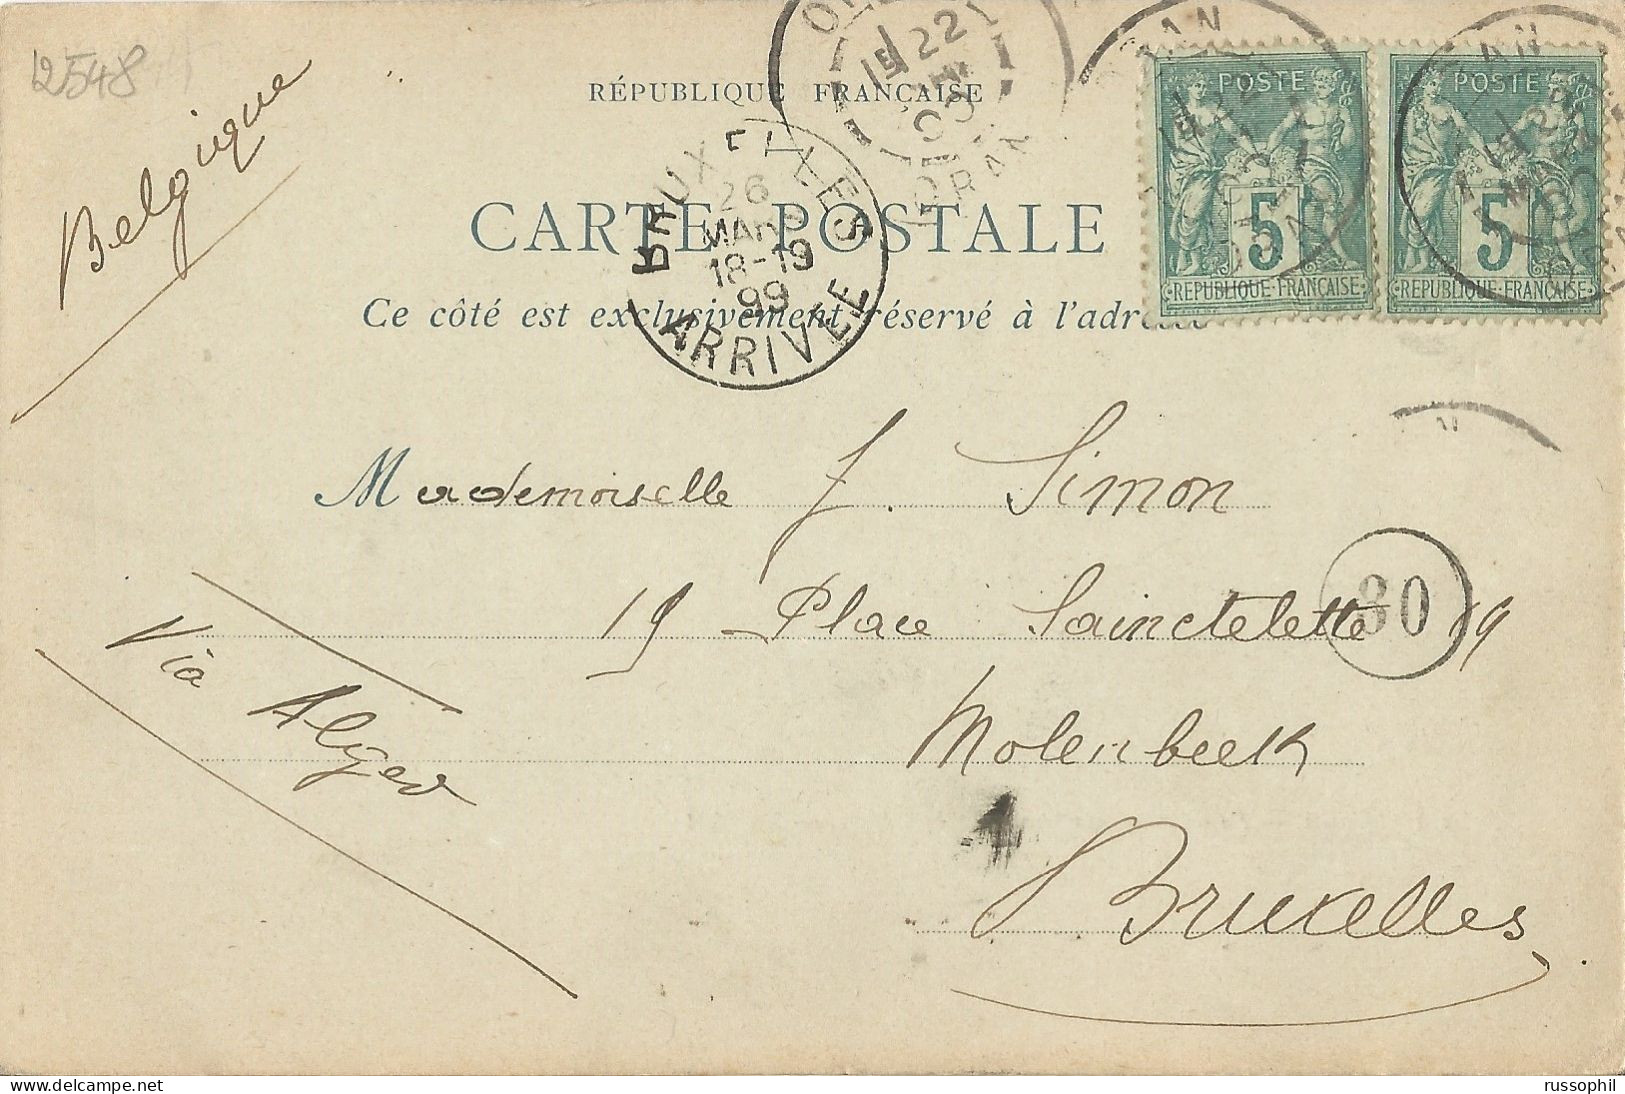 12548
Belgique
RÉPUBLIQUE FRANÇAISE
CARTE POSTALE
Ce côté est exclusivement réservé à l'adresse
POSTE
5
REPUBLIQUE·FRANÇAISE
POSTE
5
REPUBLIQUE·FRANÇAISE
22
ORAN
BRUXELLES
26
MARS
18-19
99
ARRIVÉE
Mademoiselle J. Simon
19 Place Sainctelette 19
30
Via Alger
Molenbeek
1
Bruxelles
russophil www.delcampe.net